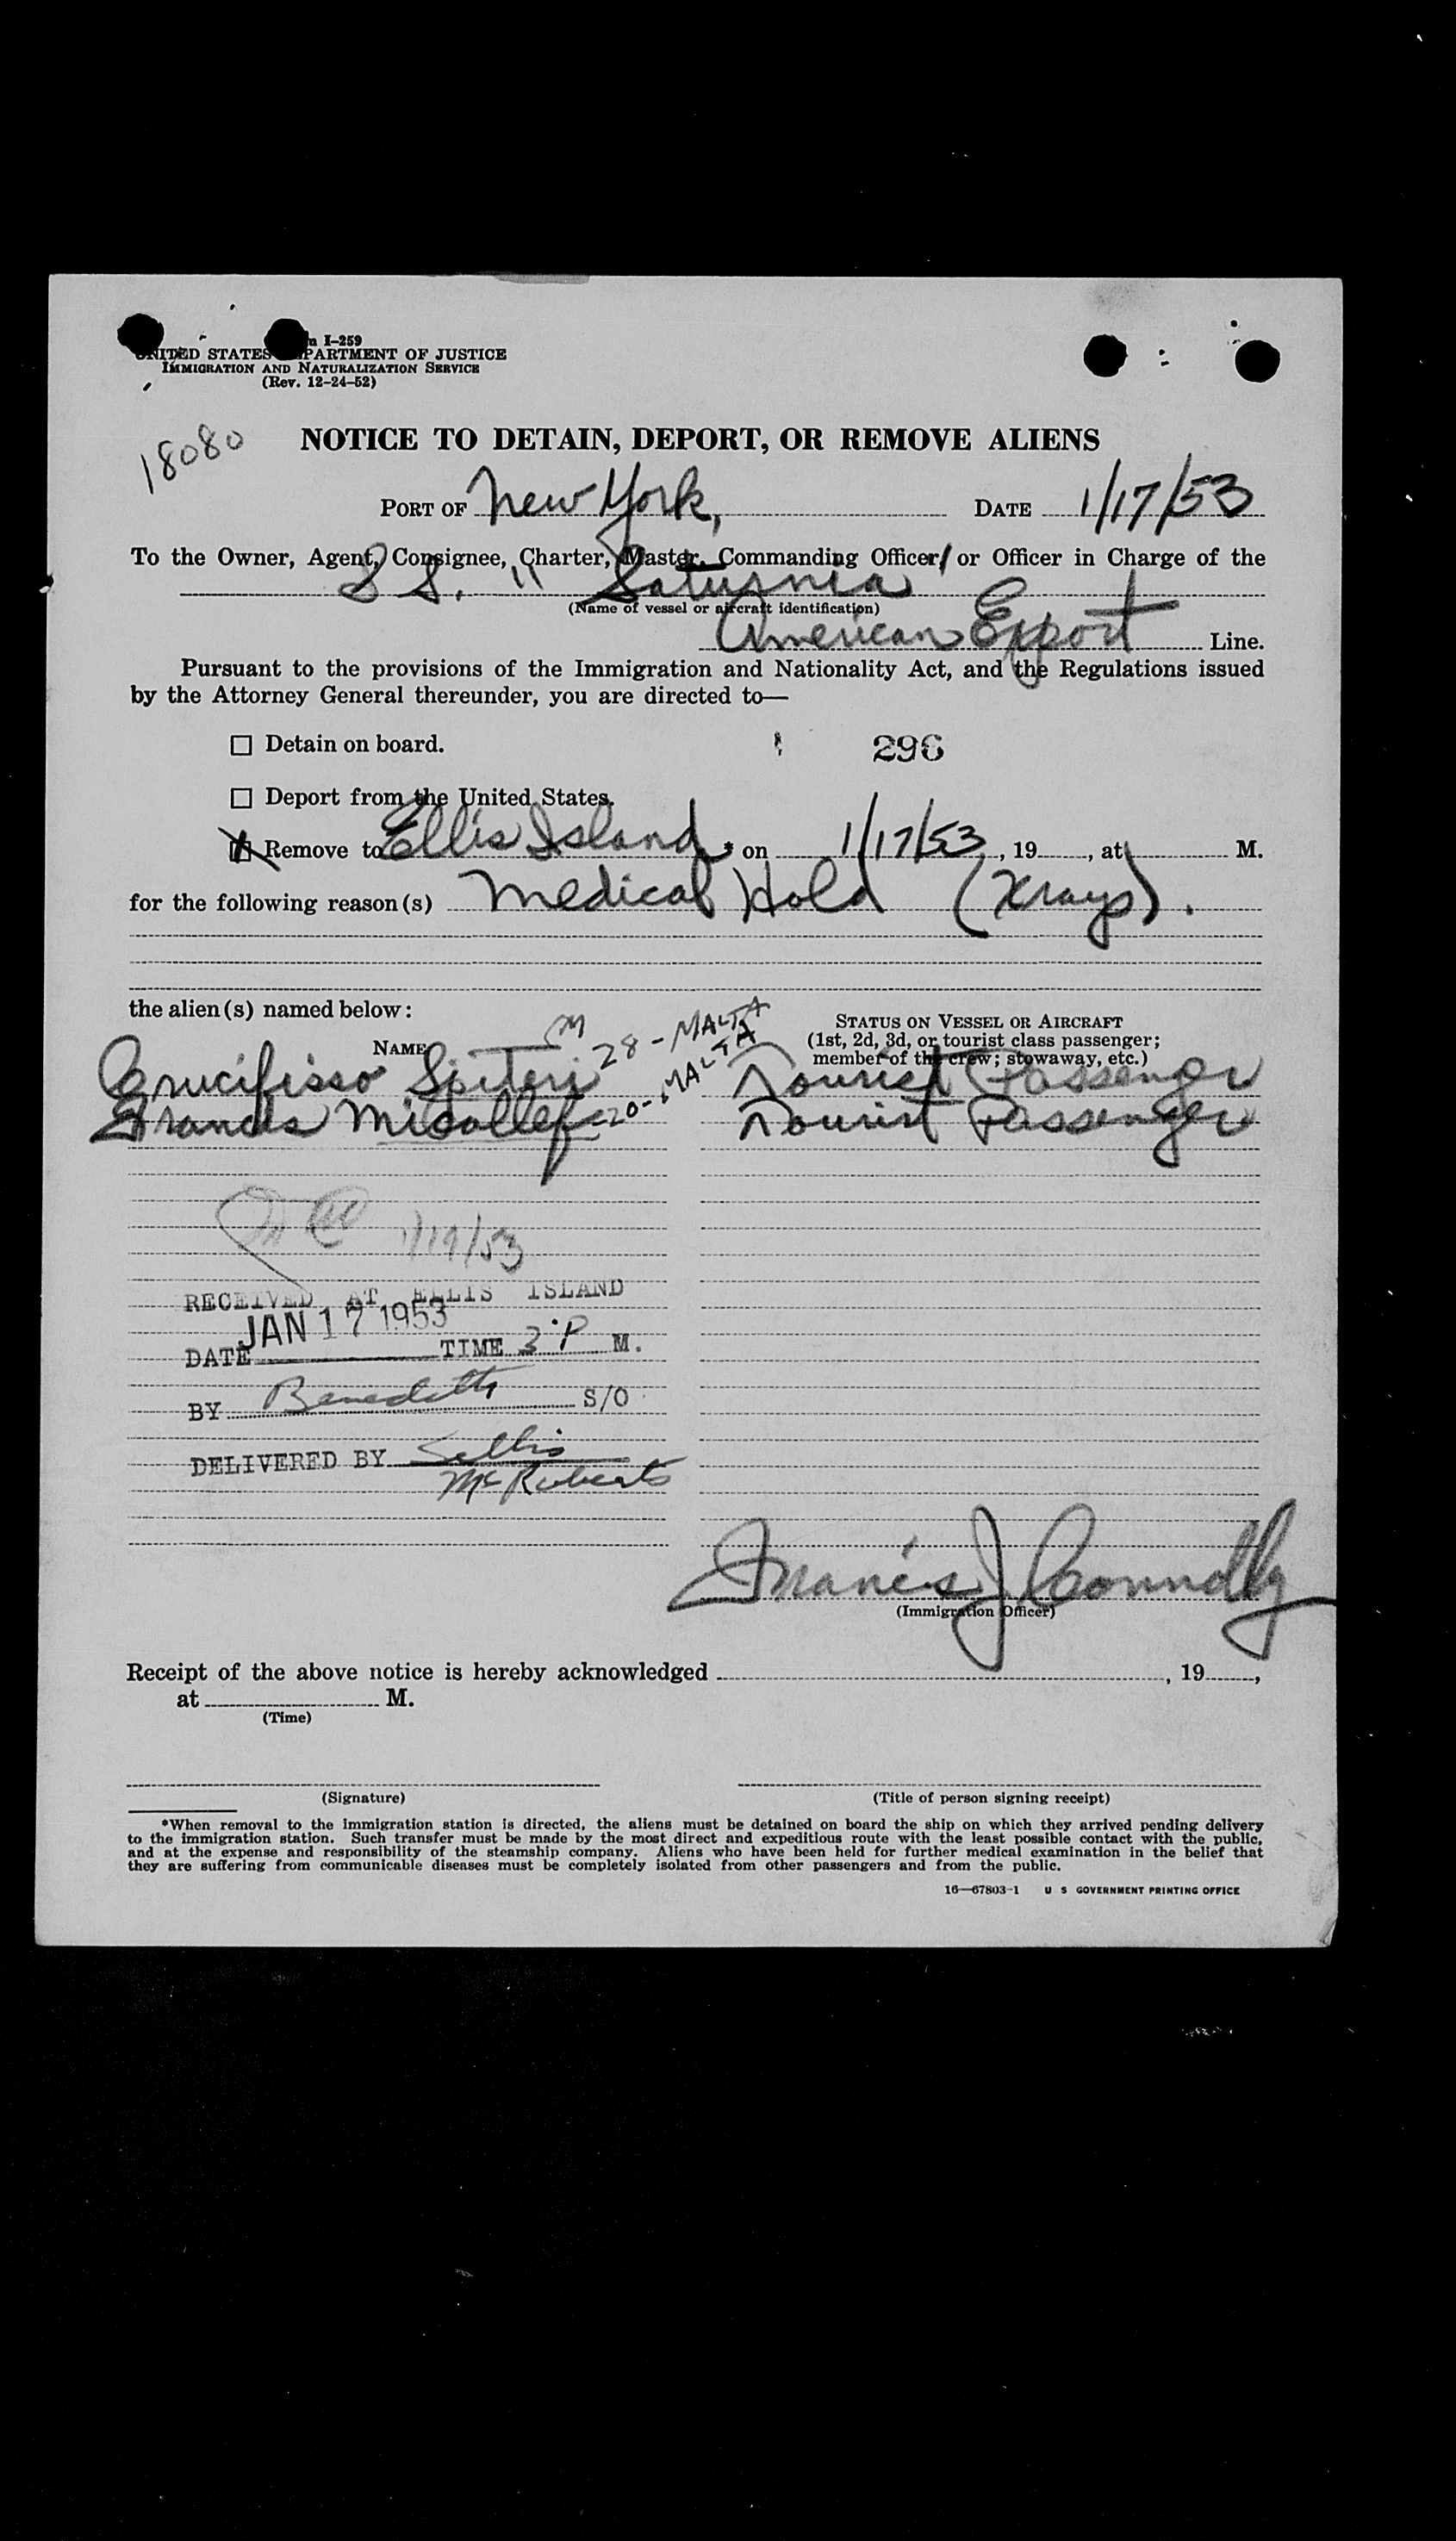 I-259
UNITED STATES DEPARTMENT OF JUSTICE
IMMIGRATION AND NATURALIZATION SERVICE
(Rev. 12-24-52)
18080
NOTICE TO DETAIN, DEPORT, OR REMOVE ALIENS
PORT OF New York, DATE 1/17/53
To the Owner, Agent, Consignee, Charter, Master, Commanding Officer, or Officer in Charge of the
S S. "Saturnia"
(Name of vessel or aircraft identification)
American Export Line.
Pursuant to the provisions of the Immigration and Nationality Act, and the Regulations issued
by the Attorney General thereunder, you are directed to—
☐ Detain on board. 296
☐ Deport from the United States.
☒ Remove to Ellis Island * on 1/17/53, 19, at M.
for the following reason(s) Medical Hold (Xrays).
the alien(s) named below:
NAME
STATUS ON VESSEL OR AIRCRAFT
(1st, 2d, 3d, or tourist class passenger;
member of the crew; stowaway, etc.)
Crucifisso Spiteri M 28-MALTA Tourist Passenger
Francis Micallef 20-MALTA Tourist Passenger
1/19/53
RECEIVED AT ELLIS ISLAND
DATE JAN 17 1953 TIME 3 P M.
BY Benedetti S/O
DELIVERED BY
McRoberts
Francis J Connolly
(Immigration Officer)
Receipt of the above notice is hereby acknowledged , 19 ,
at M.
(Time)
(Signature) (Title of person signing receipt)
*When removal to the immigration station is directed, the aliens must be detained on board the ship on which they arrived pending delivery
to the immigration station. Such transfer must be made by the most direct and expeditious route with the least possible contact with the public,
and at the expense and responsibility of the steamship company. Aliens who have been held for further medical examination in the belief that
they are suffering from communicable diseases must be completely isolated from other passengers and from the public.
16—67803-1 U S GOVERNMENT PRINTING OFFICE